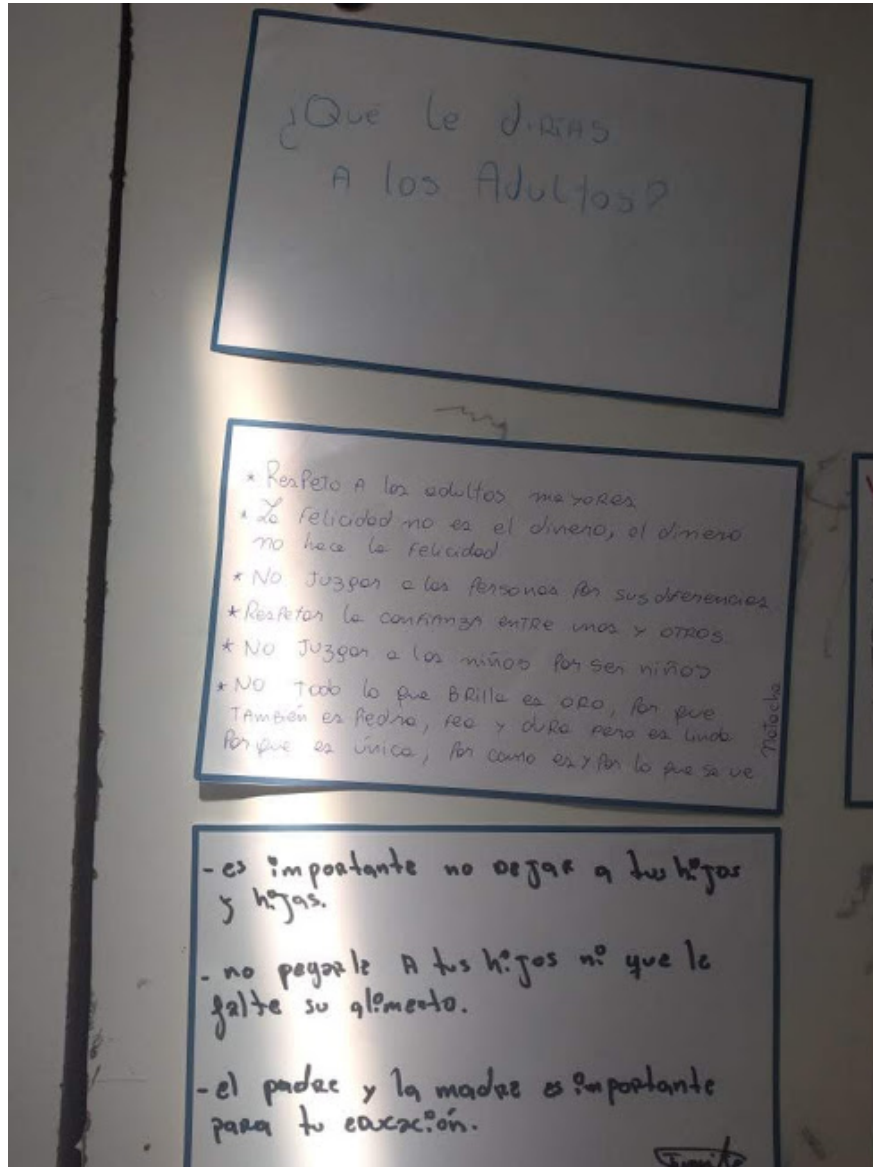 ¿Que le dirias
A los Adultos?
* Respeto A los adultos mayores
* La felicidad no es el dinero, el dinero
no hace la felicidad
* No Juzgar a las Personas Por sus diferencias
* Respetar la confianza entre unos y otros
* No Juzgar a los niños Por ser niños
* No Todo lo que Brilla es oro, Por que
También es Piedra, fea y dura pero es linda
Porque es única, Por como es y Por lo que se ve
Natacha
- es importante no dejar a tus hijos
y hijas.
- no pegarle A tus hijos ni que le
falte su alimento.
- el padre y la madre es importante
para tu educación.